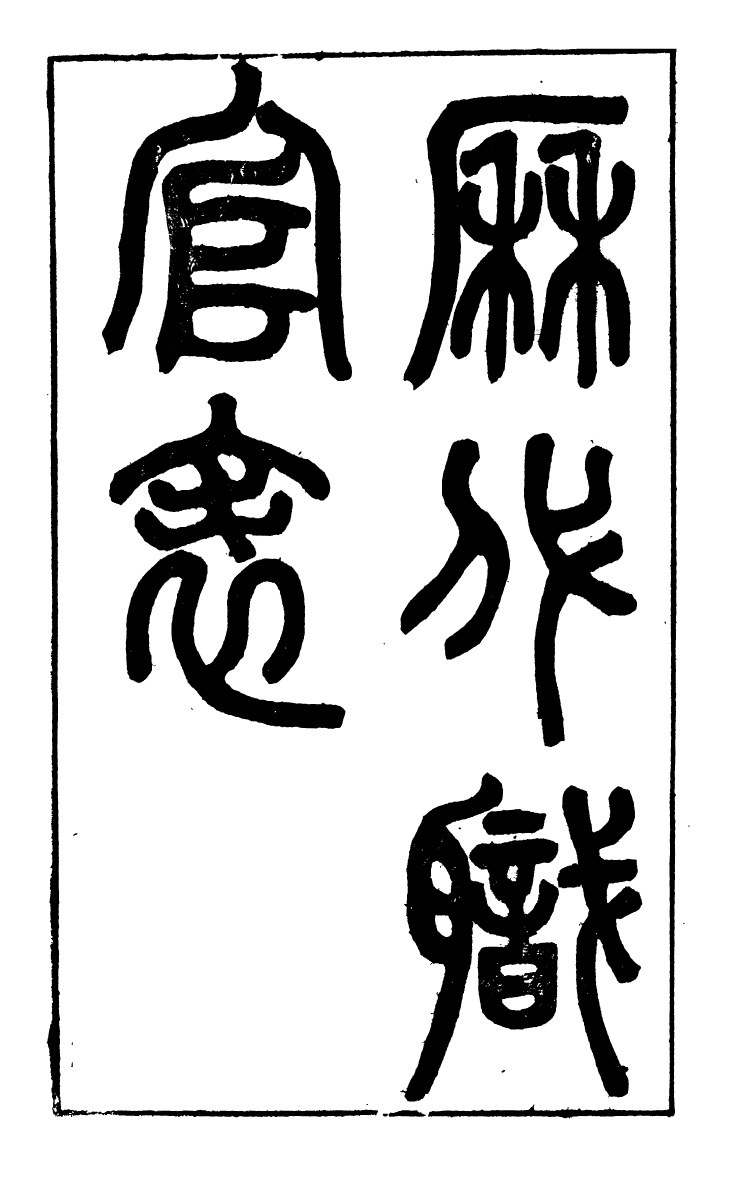 厤代職
官表